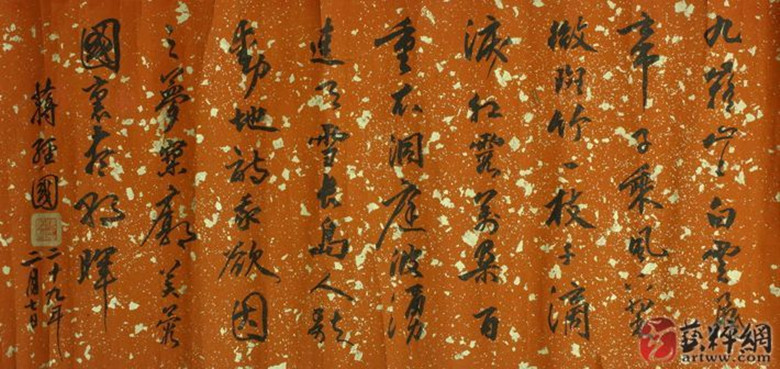 九嶷山上白雲飛
帝子乘風下翠
微斑竹一枝千滴
淚紅霞萬朵百
重衣洞庭波湧
連天雪長島人歌
動地詩我欲因
之夢寥廓芙蓉
國裏盡朝暉
蔣經國
二十九年
二月七日
藝粹網
artww.com